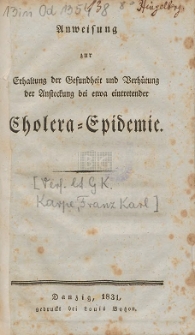 Anweisung
zur
Erhaltung der Gesundheit und Verhütung
der Ansteckung bei etwa eintretender
Cholera-Epidemie.
[Verf. ist GK
Karpe, Franz Karl]
Danzig, 1831,
gedruckt bei Louis Botzon.